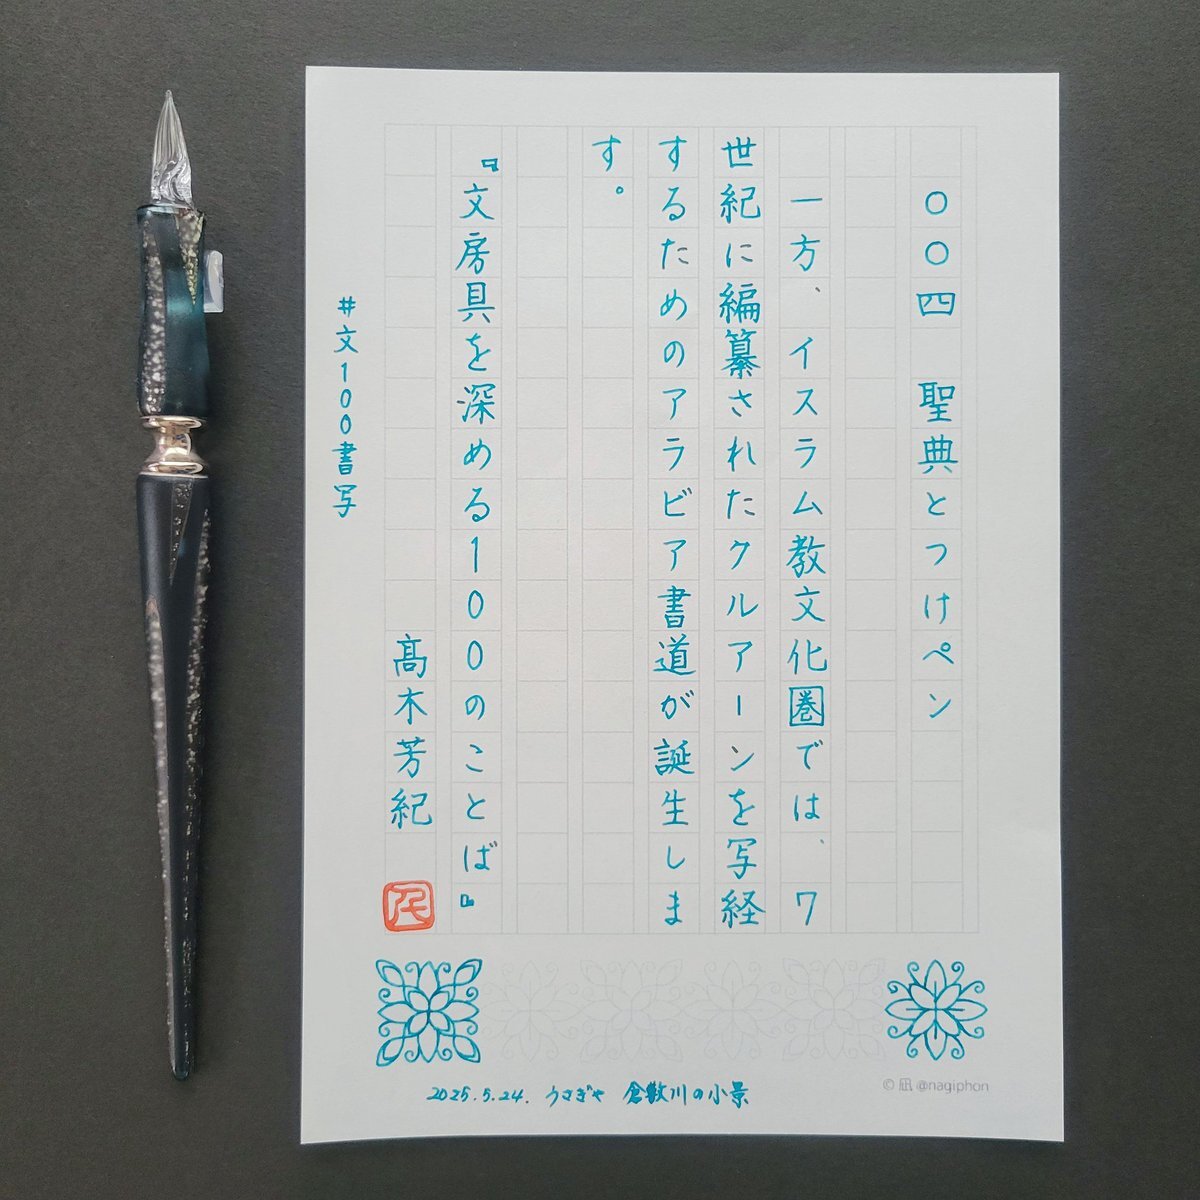 〇〇四　聖典とつけペン
一方、イスラム教文化圏では、7
世紀に編纂されたクルアーンを写経
するためのアラビア書道が誕生しま
す。
『文房具を深める100のことば』
髙木芳紀
#文100書写
2025.5.24. うさぎや 倉敷川の小景
© 凪 @nagiphon